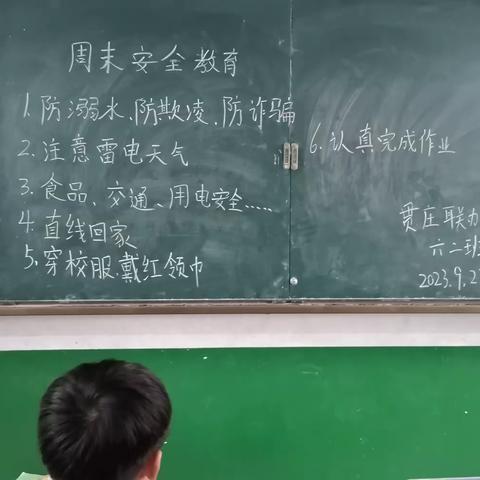 周末安全教育
1.防溺水、防欺凌、防诈骗
2.注意雷电天气
3.食品、交通、用电安全.....
4.直线回家
5.穿校服.戴红领巾
6.认真完成作业
贾庄联办
六二班
2023.9.2